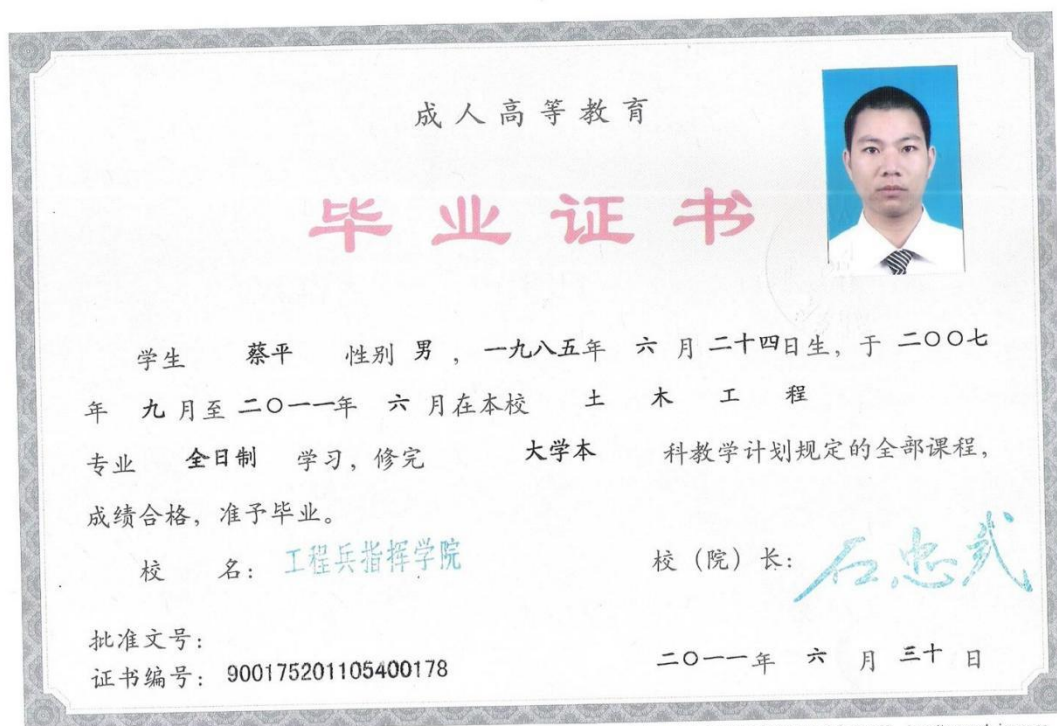 成人高等教育
毕业证书
学生 蔡平 性别 男 ，一九八五年 六 月 二十四日生，于 二〇〇七
年 九 月至 二〇一一年 六 月在本校 土 木 工 程
专业 全日制 学习，修完 大学本 科教学计划规定的全部课程，
成绩合格，准予毕业。
校 名：工程兵指挥学院 校（院）长：石忠武
批准文号：
证书编号：900175201105400178 二〇一一年 六 月 三十 日